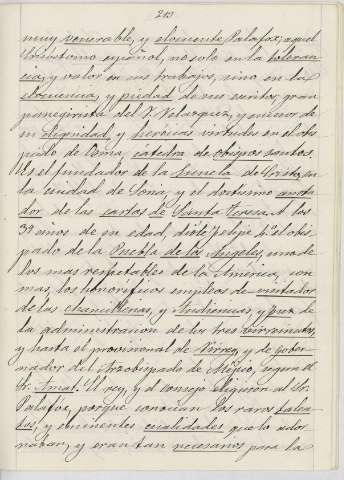 203
muy venerable, y elocuente Palafox; aquel
Crisóstomo español, no solo en la toleran
cia, y valor en sus trabajos, sino en la
elocuencia, y piedad de sus escritos, gran
panegirista del V. Velazquez, y émulo de
su dignidad, y heróicas virtudes en el obis
pado de Osma, cátedra de obispos santos.
Es el fundador de la Escuela de Cristo, en
la ciudad de Soria, y el doctísimo anota
dor de las cartas de Santa Teresa. A los
39 anos de su edad, dióle Felipe 4º el obis
pado de la Puebla de los Angeles, uno de
los mas respetables de la América, con
mas, los honoríficos empleos de visitador
de las chancillerias, y Audiencias, y juez de
la administracion de los tres Vireinatos,
y hasta el provisional de Virrey, y de gober
nador del Arzobispado de Méjico, segun el
Sr. Amat. El rey, y el Consejo eligieron al Sr.
Palafox, porque conocian los raros talen
tos, y eminentes cualidades que lo ador
naban, y eran tan necesarios para la